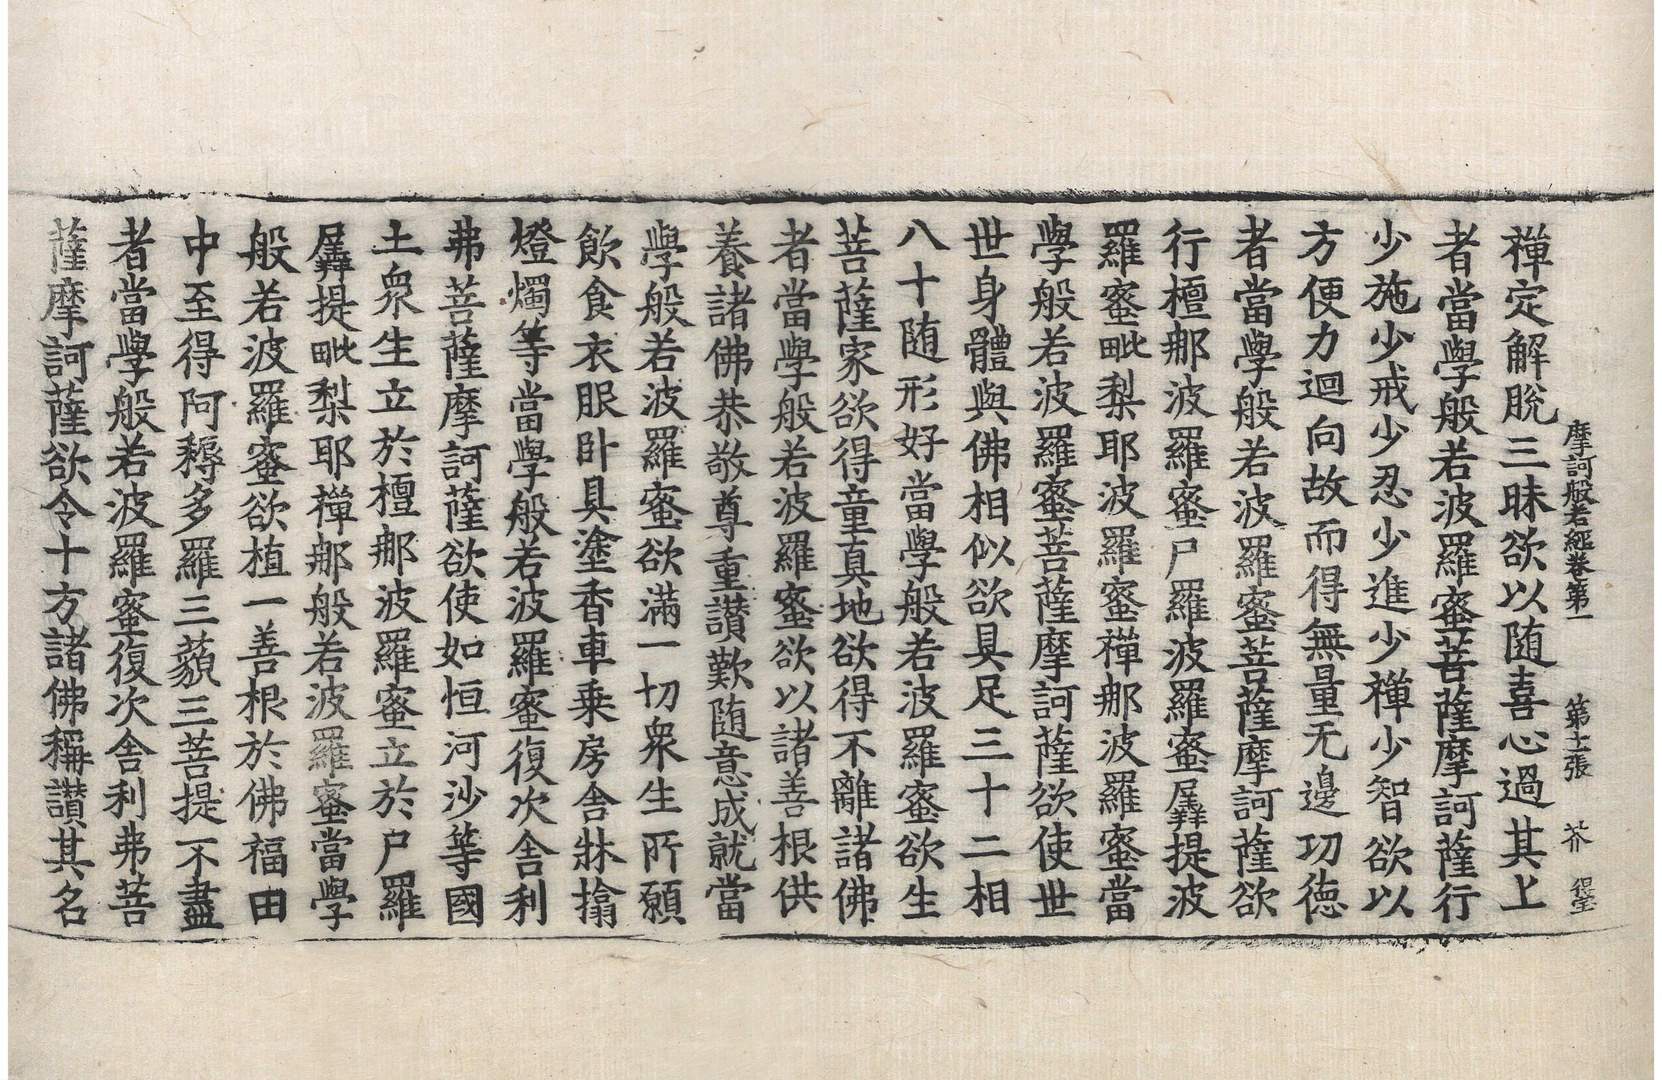 摩訶般若經卷第一　第十一張　芥　得宝
禪定解脫三昧欲以随喜心過其上
者當學般若波羅蜜菩薩摩訶薩行
少施少戒少忍少進少禪少智欲以
方便力迴向故而得無量无邊功德
者當學般若波羅蜜菩薩摩訶薩欲
行檀那波羅蜜尸羅波羅蜜羼提波
羅蜜毗梨耶波羅蜜禪那波羅蜜當
學般若波羅蜜菩薩摩訶薩欲使世
世身體與佛相似欲具足三十二相
八十随形好當學般若波羅蜜欲生
菩薩家欲得童真地欲得不離諸佛
者當學般若波羅蜜欲以諸善根供
養諸佛恭敬尊重讃歎随意成就當
學般若波羅蜜欲滿一切衆生所願
飲食衣服卧具塗香車乗房舍牀搨
燈燭等當學般若波羅蜜復次舍利
弗菩薩摩訶薩欲使如恒河沙等國
土衆生立於檀那波羅蜜立於尸羅
羼提毗梨耶禪那般若波羅蜜當學
般若波羅蜜欲植一善根於佛福田
中至得阿耨多羅三藐三菩提不盡
者當學般若波羅蜜復次舍利弗菩
薩摩訶薩欲令十方諸佛稱讃其名